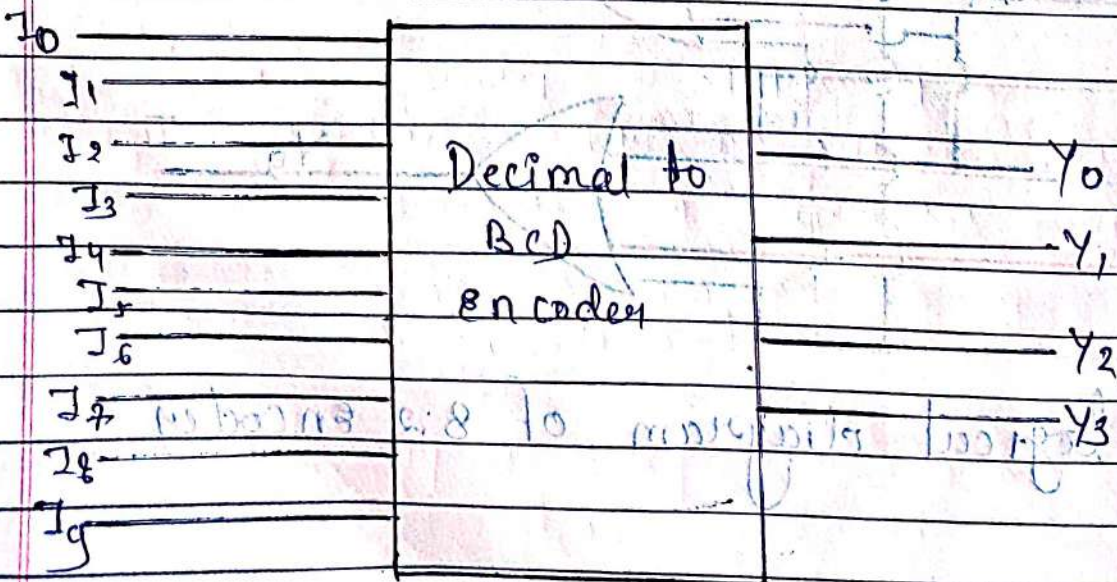 I0
I1
I2
I3
I4
I5
I6
I7
I8
I9
Decimal to
BCD
encoder
Y0
Y1
Y2
Y3